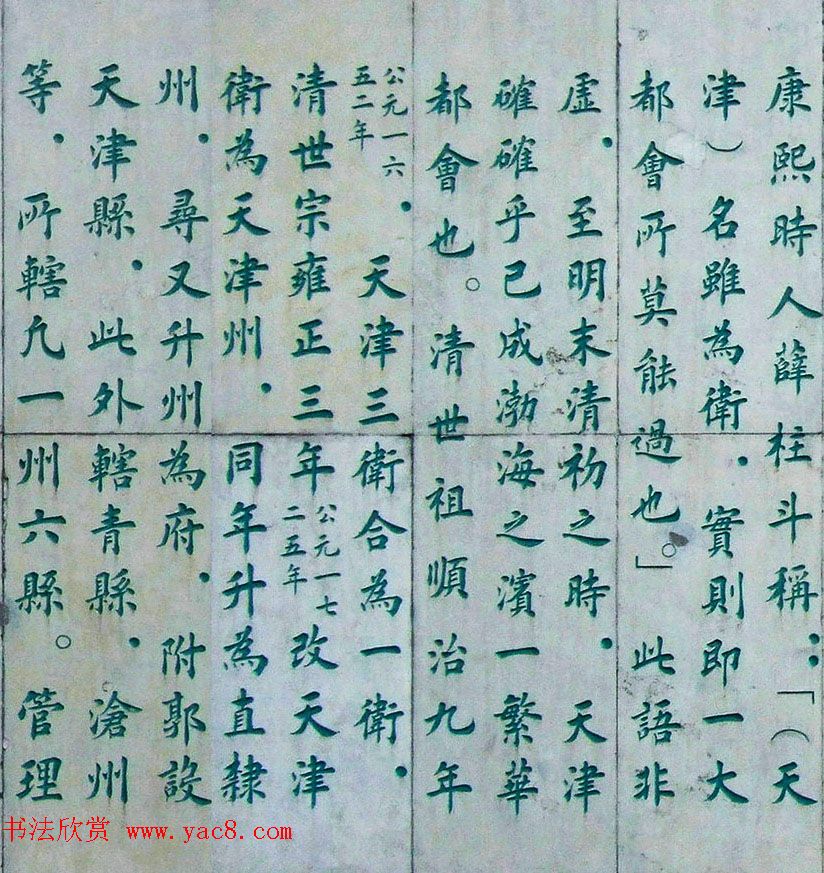 康熙時人薛柱斗稱：「（天
津）名雖為衛．實則即一大
都會所莫能過也。」此語非
虛．至明末清初之時．天津
確確乎已成渤海之濱一繁華
都會也。清世祖順治九年
公元一六五二年．天津三衛合為一衛．
清世宗雍正三年公元一七二五年改天津
衛為天津州．同年升為直隸
州．尋又升州為府．附郭設
天津縣．此外轄青縣．滄州
等．所轄凡一州六縣。管理
书法欣赏 www.yac8.com